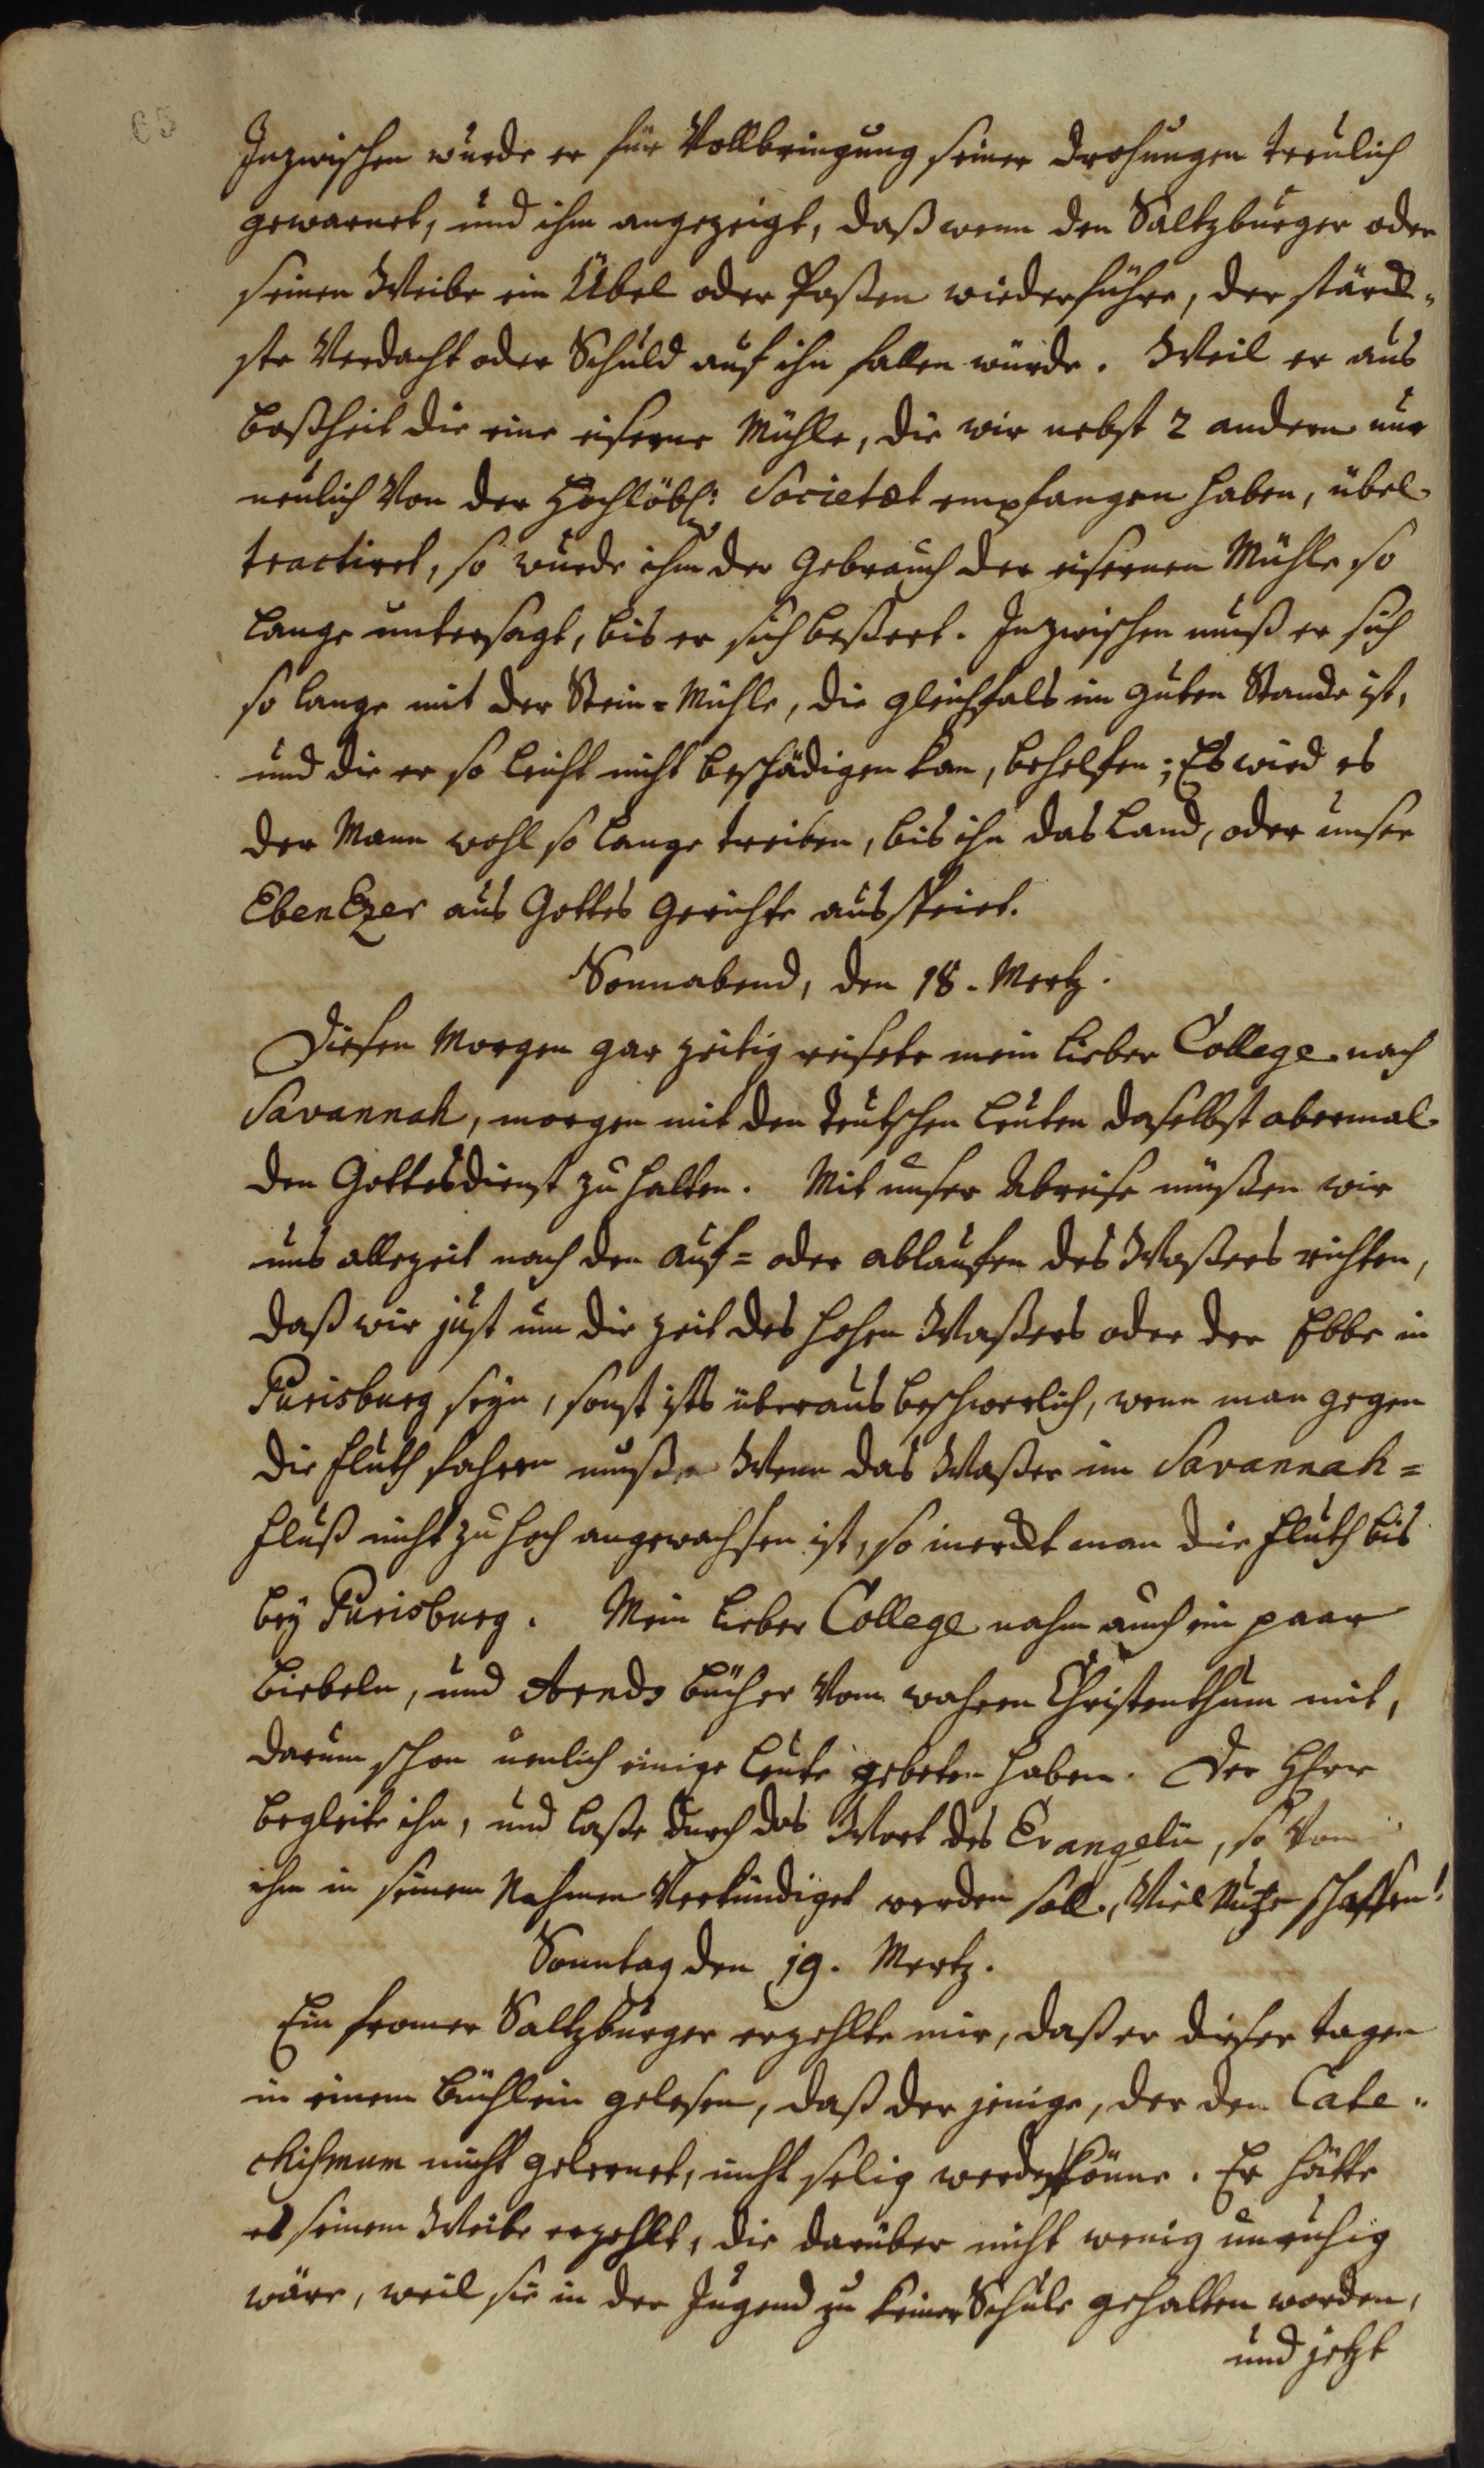 65
Inzwischen wurde er für Vollbringung seiner Drohungen treulich
gewarnet, und ihm angezeigt, daß wenn den Saltzburger oder
seinen Weibe ein Übel oder Poßen wiederführe, der stärck-
ste Verdacht oder Schuld auf ihn fallen würde. Weil er aus
Boßheit die eine eiserne Mühle, die wir nebst 2 andern nur
neulich von der Hochlöbl: Societæt empfangen haben, übel
tractiret, so wurde ihm der Gebrauch der eisernen Mühle so
lange untersagt, bis er sich beßert. Inzwischen muß er sich
so lange mit der Stein=Mühle, die gleichfals im guten Stande ist,
und die er so leicht nicht beschädigen kan, behelfen; Es wird es
der Mann wohl so lange treiben, bis ihn das Land, oder unser
EbenEzer aus Gottes Gerichte ausspeiet.
Sonnabend, den 18. Mertz.
Diesen Morgen gar zeitig reisete mein lieber College nach
Savannah, morgen mit den teutschen Leuten daselbst abermal
den Gottesdienst zu halten. Mit unser Abreise müßen wir
uns allezeit nach den auf= oder ablaufen des Waßers richten,
daß wir just um die Zeit des hohen Waßers oder der Ebbe in
Purisburg seyn, sonst ists überaus beschwerlich, wenn man gegen
die Fluth fahren muß. Wenn das Waßer im Savannah=
Fluß nicht zu hoch angewachsen ist, so merckt man die Fluth bis
bey Purisburg. Mein lieber College nahm auch ein paar
Biebeln, und Arnds Bücher vom wahren Christenthum mit,
darum schon neulich einige Leute gebeten haben. Der HErr
begleite ihn, und laße durch das Wort des Evangelii, so von
ihm in seinem Nahmen verkündiget werden soll, viel Nutze schaffen!
Sonntag den 19. Mertz.
Ein fromer Saltzburger erzehlte mir, daß er dieser tagen
in einem Büchlein gelesen, daß der jenige, der den Cate-
chismum nicht gelernet, nicht selig werden könne. Er hätte
es seinem Weibe erzehlt, die darüber nicht wenig unruhig
wäre, weil sie in der Jugend zu keiner Schule gehalten worden,
und jetzt